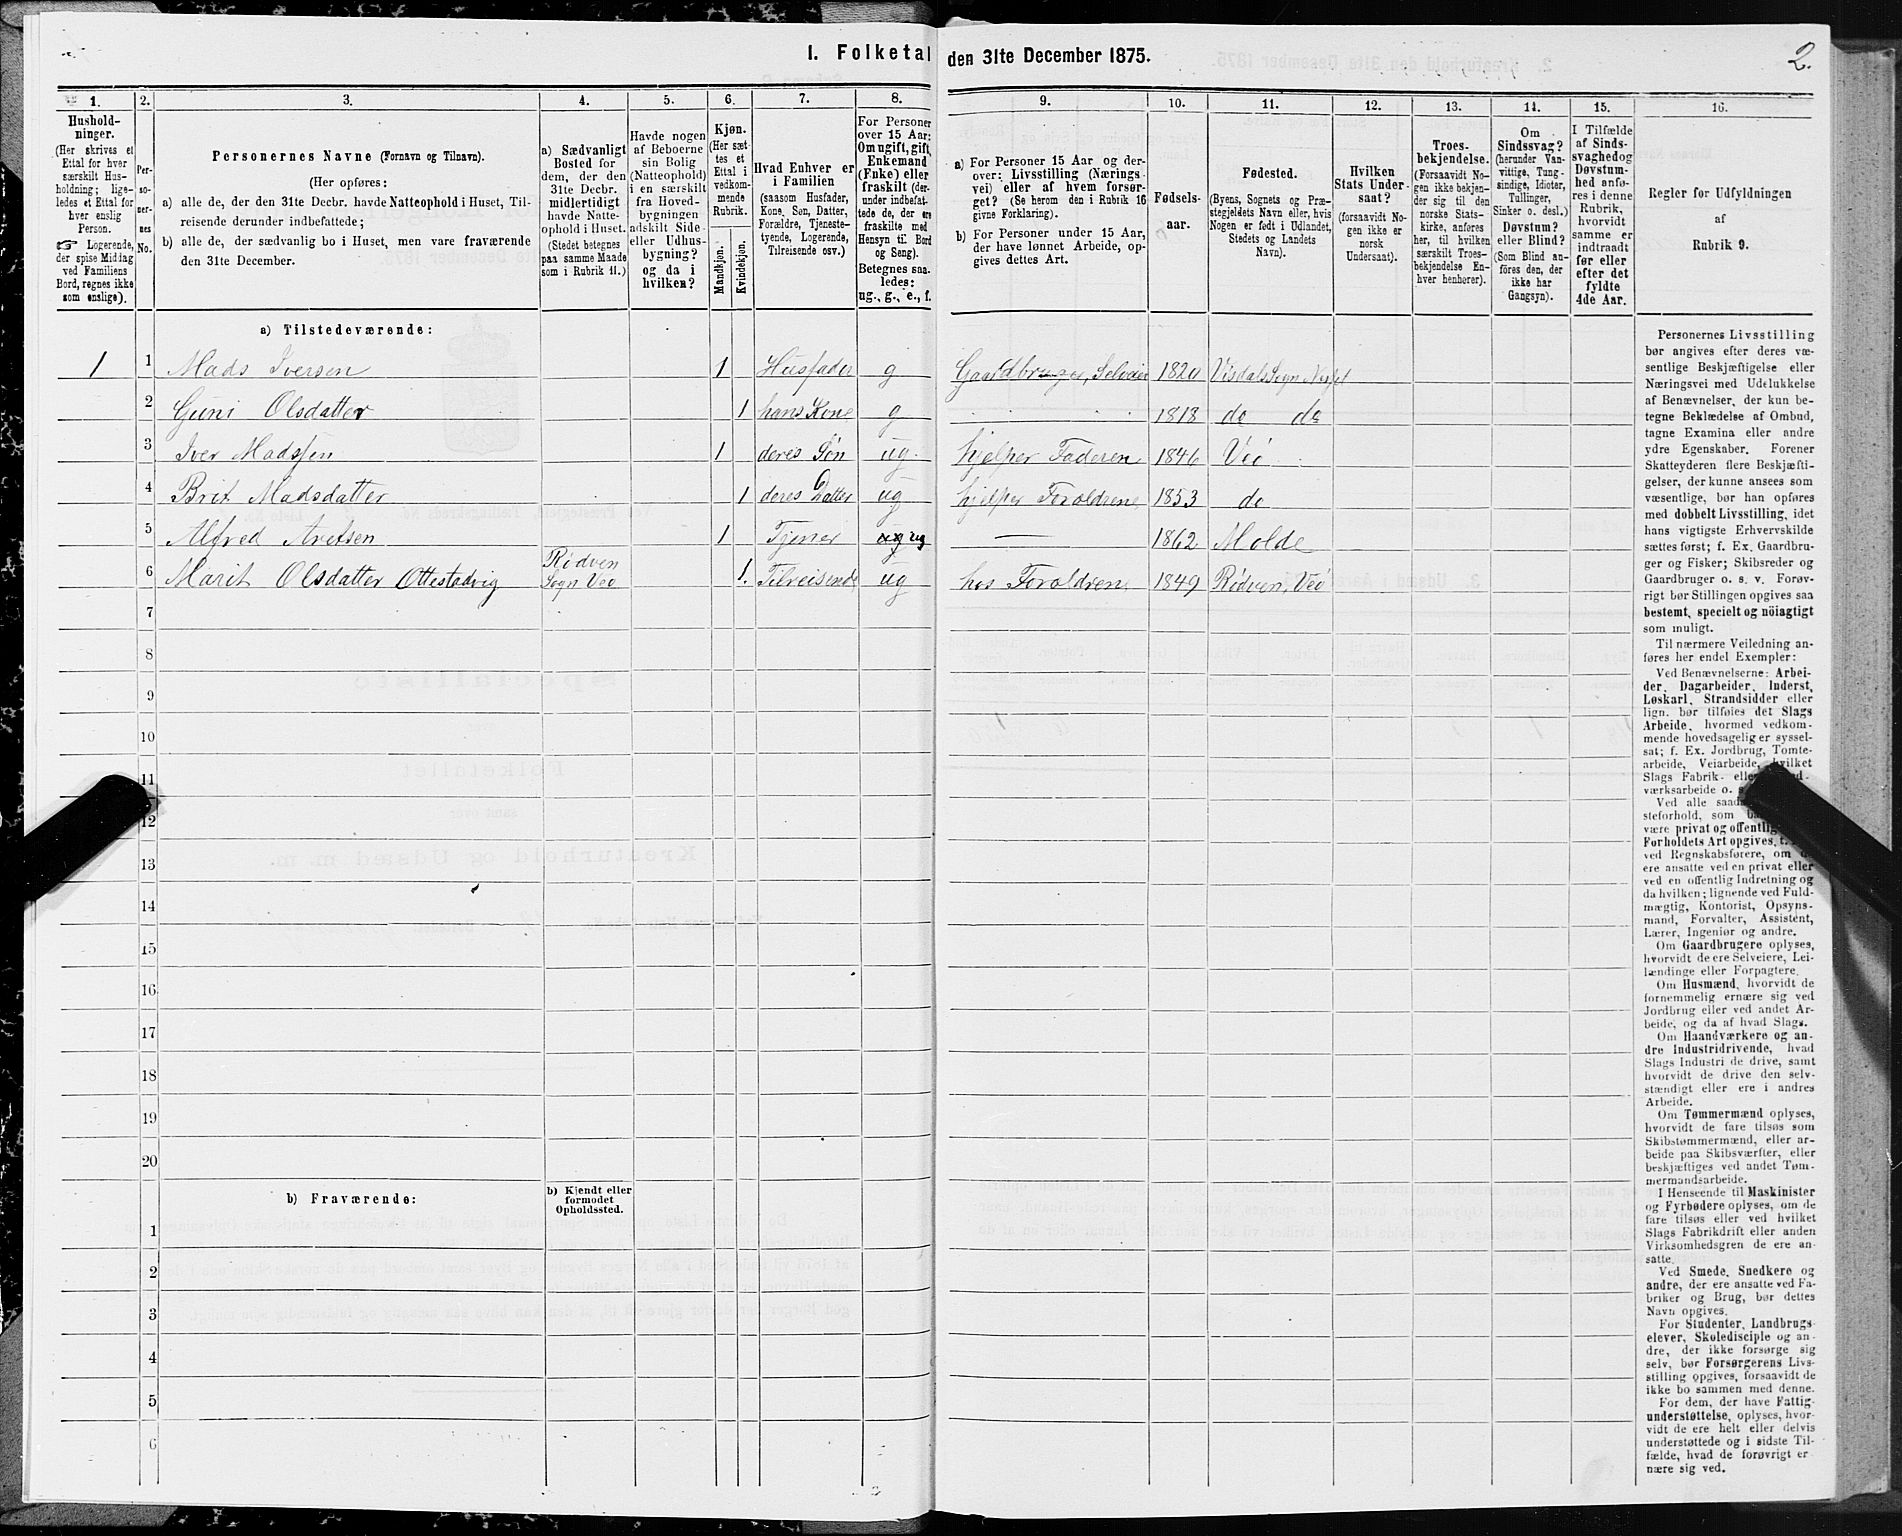 I. Folketal den 31te December 1875.
2.
1. 2. 3. 4. 5. 6. 7. 8. 9. 10. 11. 12. 13. 14. 15. 16.
Hushold-
ninger.
(Her skrives et
Ettal for hver
særskilt Hus-
holdning; lige-
ledes et Ettal for
hver enslig
Person.
☞ Logerende,
der spise Middag
ved Familiens
Bord, regnes ikke
som enslige).
Per-
so-
ner-
nes
No.
Personernes Navne (Fornavn og Tilnavn).
(Her opføres:
a) alle de, der den 31te Decbr. havde Natteophold i Huset, Til-
reisende derunder indbefattede;
b) alle de, der sædvanlig bo i Huset, men vare fraværende
den 31te December.
a) Sædvanligt
Bosted for
dem, der den
31te Decbr.
midlertidigt
havde Natte-
ophold i Huset.
(Stedet betegnes
paa samme Maade
som i Rubrik 11.)
Havde nogen
af Beboerne
sin Bolig
(Natteophold)
i en særskilt
fra Hoved-
bygningen
adskilt Side-
eller Udhus-
bygning?
og da i
hvilken?
Kjøn.
(Her sæt-
tes et
Ettal i
vedkom-
mende
Rubrik.
Mandkjøn.
Kvindekjøn.
Hvad Enhver er
i Familien
(saasom Husfader,
Kone, Søn, Datter,
Forældre, Tjeneste-
tyende, Logerende,
Tilreisende osv.)
For Personer
over 15 Aar:
Om ugift, gift,
Enkemand
(Enke) eller
fraskilt (der-
under indbefat-
tede de, der ere
fraskilte med
Hensyn til Bord
og Seng).
Betegnes saa-
ledes:
ug., g., e., f.
a) For Personer 15 Aar og der-
over: Livsstilling (Nærings-
vei) eller af hvem forsør-
get? (Se herom den i Rubrik 16
givne Forklaring).
b) For Personer under 15 Aar,
der have lønnet Arbeide, op-
gives dettes Art.
Fødsels-
aar.
Fødested.
(Byens, Sognets og Præ-
stegjeldets Navn eller, hvis
Nogen er født i Udlandet,
Stedets og Landets
Navn).
Hvilken
Stats Under-
saat?
(forsaavidt No-
gen ikke er
norsk
Undersaat).
Troes-
bekjendelse.
(Forsaavidt No-
gen ikke bekjen-
der sig til den
norske Stats-
kirke, anføres
her, til hvilken
særskilt Troes-
bekjendelse En-
hver henhører).
Om
Sindssvag?
(herunder Van-
vittige, Tung-
sindige, Idioter,
Tullinger,
Sinker o. desl.)
Døvstum?
eller Blind?
(Som Blind an-
føres den, der
ikke har
Gangsyn).
I Tilfælde
af Sinds-
svaghed og
Døvstum-
hed anfø-
res i denne
Rubrik,
hvorvidt
samme er
indtraadt
før eller
efter det
fyldte
4de Aar.
Regler for Udfyldningen
af
Rubrik 9.
a) Tilstedeværende:
1 1 Mads Iversen 1 Husfader g Gaardbruger, Selveier 1820 Visdals Sogn Nesset
2 Guni Olsdatter 1 hans Kone g 1818 do do
3 Iver Madssen 1 deres Søn ug. hjelper Faderen 1846 Veø
4 Brit Madsdatter 1 deres Datter ug hjelper Foreldrene 1853 do
5 Alfred Aretsen 1 Tjener ug — 1862 Molde
6 Marit Olsdatter Ottestadvig Rødven Sogn Veø 1. Tilreisende ug hos Foreldrene 1849 Rødven, Veø
7
8
9
10
11
12
13
14
15
16
17
18
19
20
b) Fraværende:
b) Kjendt eller
formodet
Opholdssted.
1
2
3
4
5
6
Personernes Livsstilling
bør angives efter deres væ-
sentlige Beskjæftigelse eller
Næringsvei med Udelukkelse
af Benævnelser, der kun be-
tegne Beklædelse af Ombud,
tagne Examina eller andre
ydre Egenskaber. Forener
Skatteyderen flere Beskjæfti-
gelser, der kunne ansees som
væsentlige, bør han opføres
med dobbelt Livsstilling, idet
hans vigtigste Erhvervskilde
sættes først; f. Ex. Gaardbru-
ger og Fisker; Skibsreder og
Gaardbruger o. s. v. Forøv-
rigt bør Stillingen opgives saa
bestemt, specielt og nöiagtigt
som muligt.
Til nærmere Veiledning an-
føres her endel Exempler:
Ved Benævnelserne: Arbei-
der, Dagarbeider, Inderst,
Løskarl, Strandsidder eller
lign. bør tilføies det Slags
Arbeide, hvormed vedkom-
mende hovedsagelig er syssel-
sat; f. Ex. Jordbrug, Tomte-
arbeide, Veiarbeide, hvilket
Slags Fabrik- eller
værksarbeide o. s.
Ved alle
steforhold, som
være privat og offentlig
Forholdets Art opgives,
ved Regnskabsførere, om
ere ansatte ved en privat eller
ved en offentlig Indretning og
da hvilken; lignende ved Fuld-
mægtig, Kontorist, Opsyns-
mand, Forvalter, Assistent,
Lærer, Ingeniør og andre.
Om Gaardbrugere oplyses,
hvorvidt de ere Selveiere, Lei-
lændinge eller Forpagtere.
Om Husmænd, hvorvidt de
fornemmelig ernære sig ved
Jordbrug eller ved andet Ar-
beide, og da af hvad Slags.
Om Haandværkere og an-
dre Industridrivende, hvad
Slags Industri de drive, samt
hvorvidt de drive den selv-
stændigt eller ere i andres
Arbeide.
Om Tømmermænd oplyses,
hvorvidt de fare tilsøs som
Skibstømmermænd, eller ar-
beide paa Skibsværfter, eller
beskjæftiges ved andet Tøm-
mermandsarbeide.
I Henseende til Maskinister
og Fyrbødere oplyses, om de
fare tilsøs eller ved hvilket
Slags Fabrikdrift eller anden
Virksomhedsgren de ere an-
satte.
Ved Smede, Snedkere og
andre, der ere ansatte ved Fa-
briker og Brug, bør dettes
Navn opgives.
For Studenter, Landbrugs-
elever, Skoledisciple og an-
dre, der ikke forsørge sig
selv, bør Forsørgerens Livs-
stilling opgives, forsaavidt de
ikke bo sammen med denne.
For dem, der have Fattig-
understøttelse, oplyses, hvor-
vidt de ere helt eller delvis
understøttede og i sidste Til-
fælde, hvad de forøvrigt er-
nære sig ved.